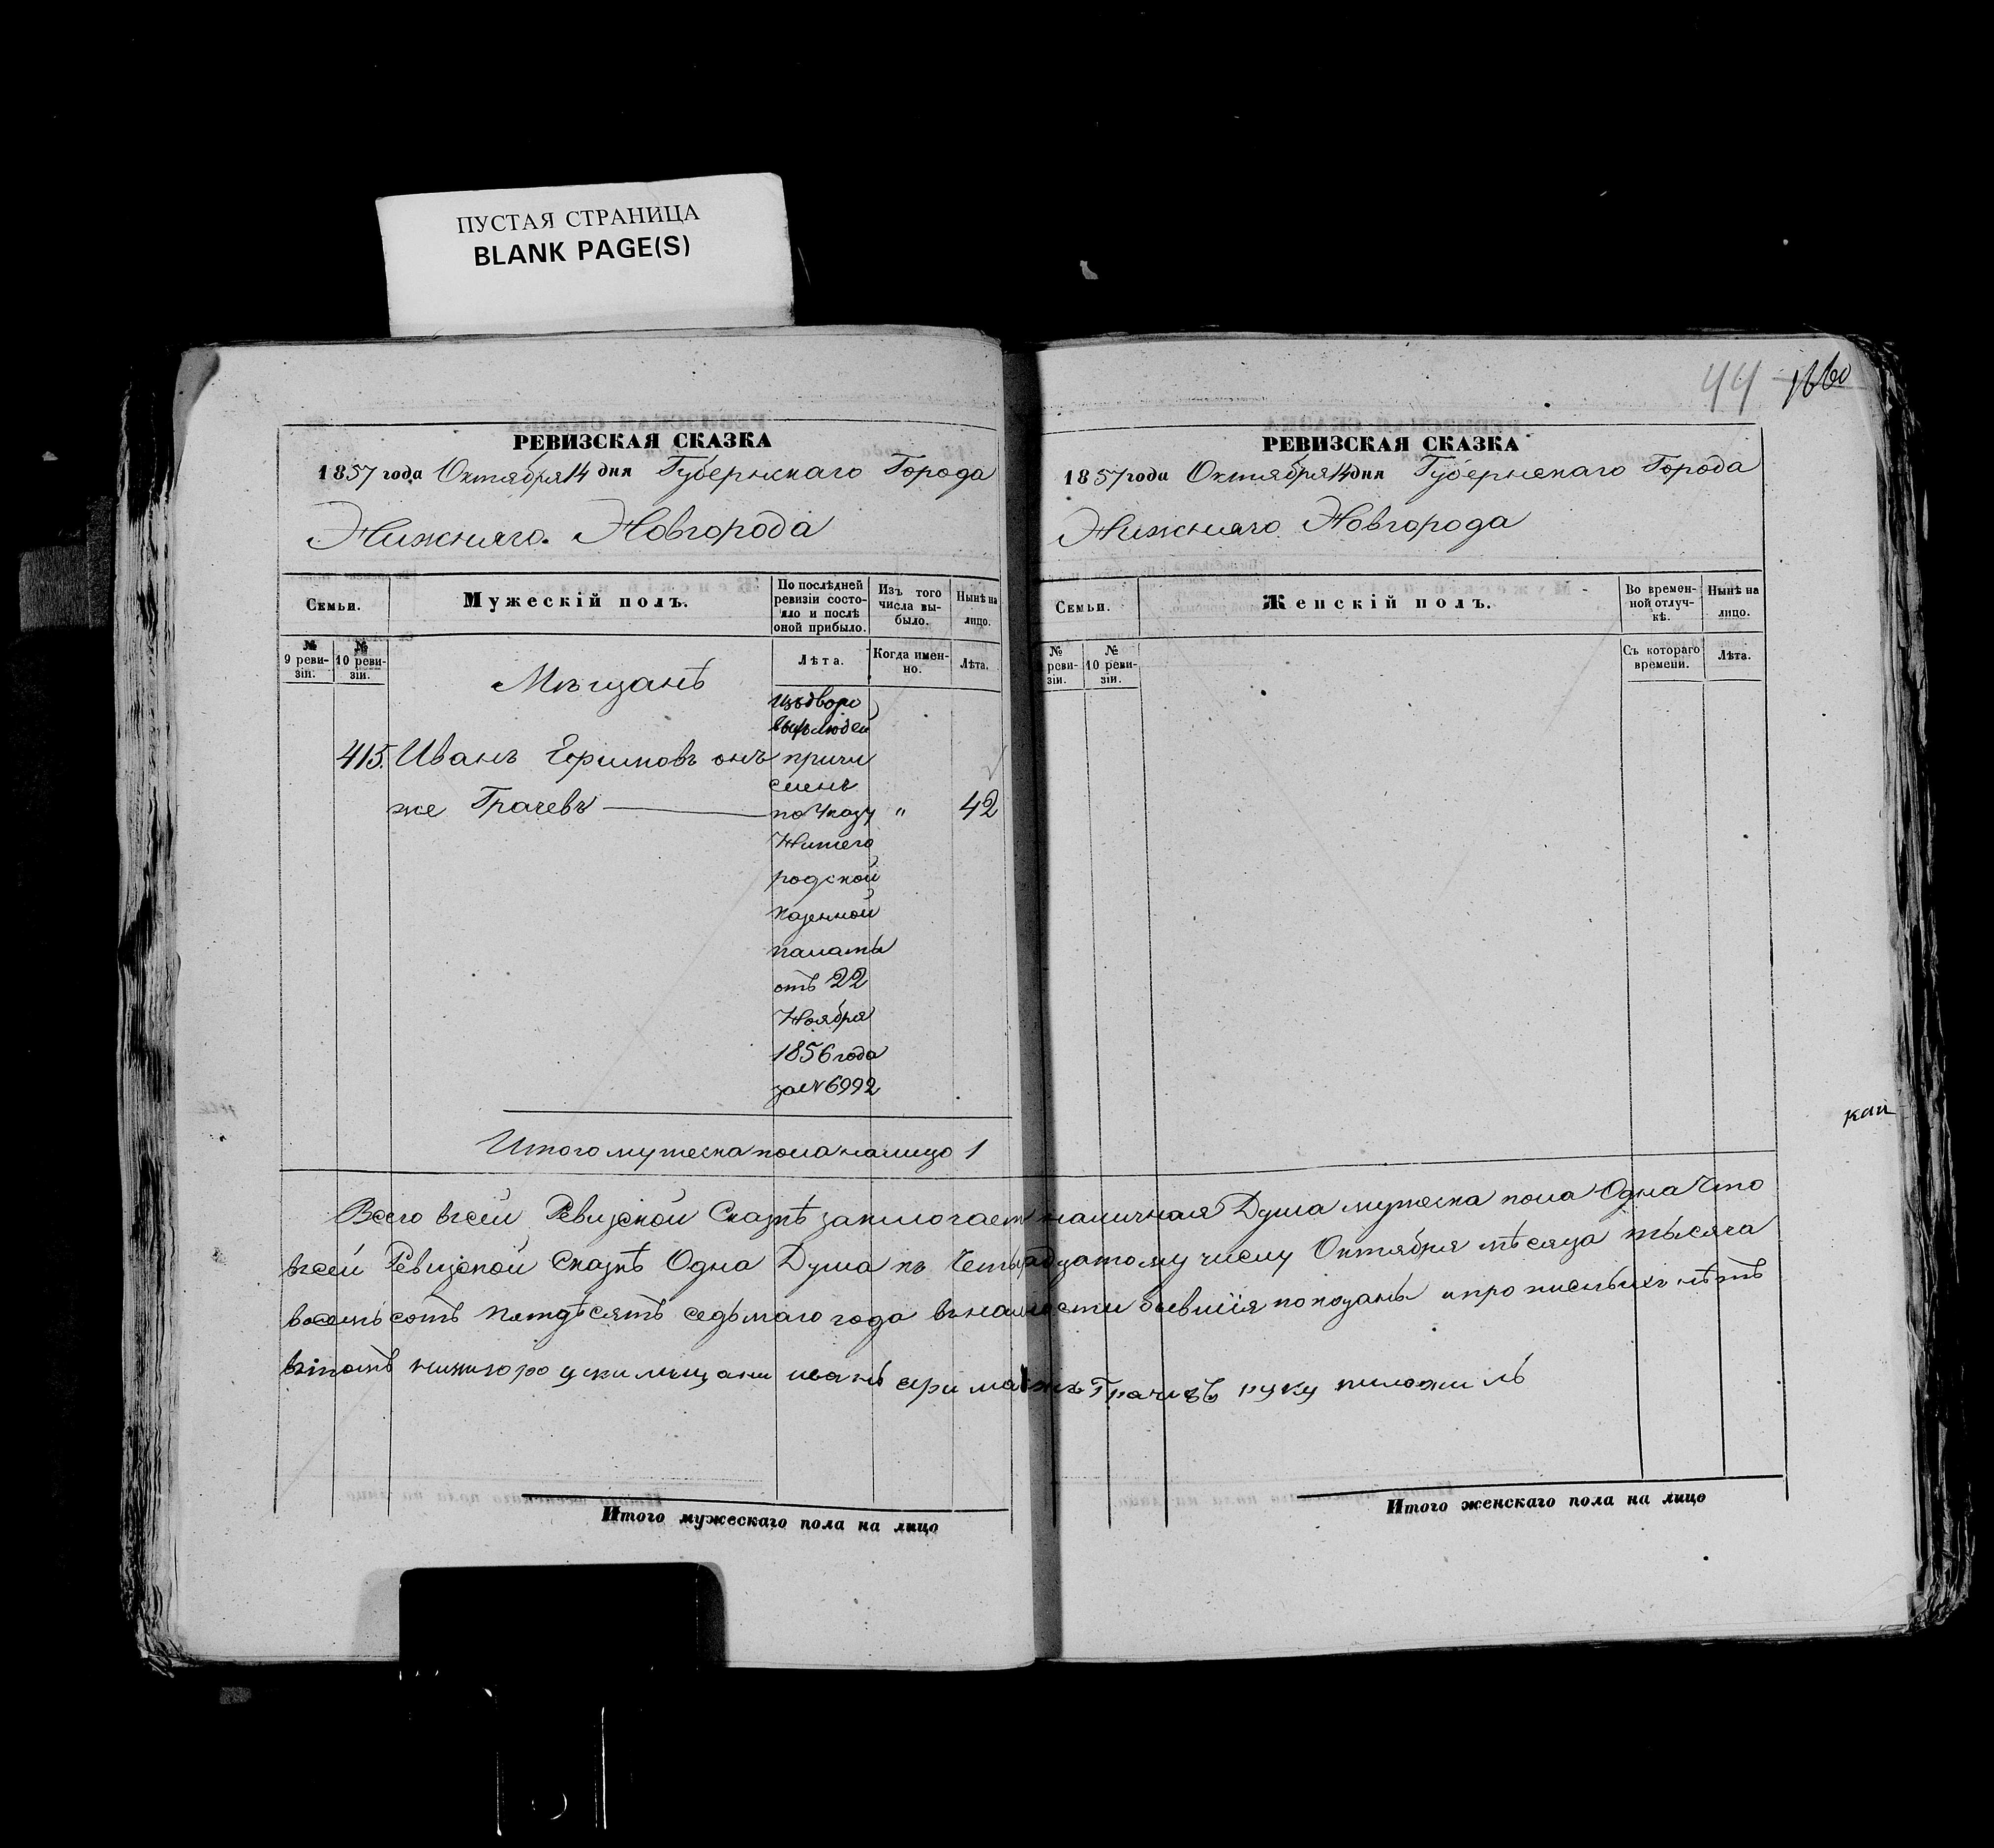 ПУСТАЯ СТРАНИЦА
BLANK PAGE(S)
РЕВИЗСКАЯ СКАЗКА
1857 года Октября 14 дня Губернскаго Города
Нижняго Новгорода
Семьи.
Мужескій полъ.
По послѣдней
ревизіи состо-
яло и послѣ
оной прибыло.
Изъ того
числа вы-
было.
Нынѣ на
лицо.
№
9 реви-
зіи.
№
10 реви-
зіи.
Лѣта.
Когда имен-
но.
Лѣта.
Мѣщанѣ
изъ дворо
выхъ людей
415. Иванъ Ефимовъ онъ причи
сленъ
же Грачевъ по Указу " 42
Нижего
родской
казенной
палаты
отъ 22
Ноября
1856 года
за № 6992
Итого мужеска пола налицо 1
44
РЕВИЗСКАЯ СКАЗКА
1857 года Октября 14 дня Губернскаго Города
Нижняго Новгорода
Семьи.
Женскій полъ.
Во времен-
ной отлуч-
кѣ.
Нынѣ на
лицо.
№
реви-
зіи.
№
10 реви-
зіи.
Съ котораго
времени.
Лѣта.
Всего всей Ревизской Сказкѣ заключает наличная Душа мужеска пола Одна Что
всей Ревизской Сказкѣ Одна Душа къ Четырнадцатому числу Октября мѣсяца тысяча
восемьсотъ пятдѣсятъ седьмаго года въ наличности бывшія показаны и прописныхъ нѣтъ
Грачевъ руку
Итого мужескаго пола на лицо
Итого женскаго пола на лицо